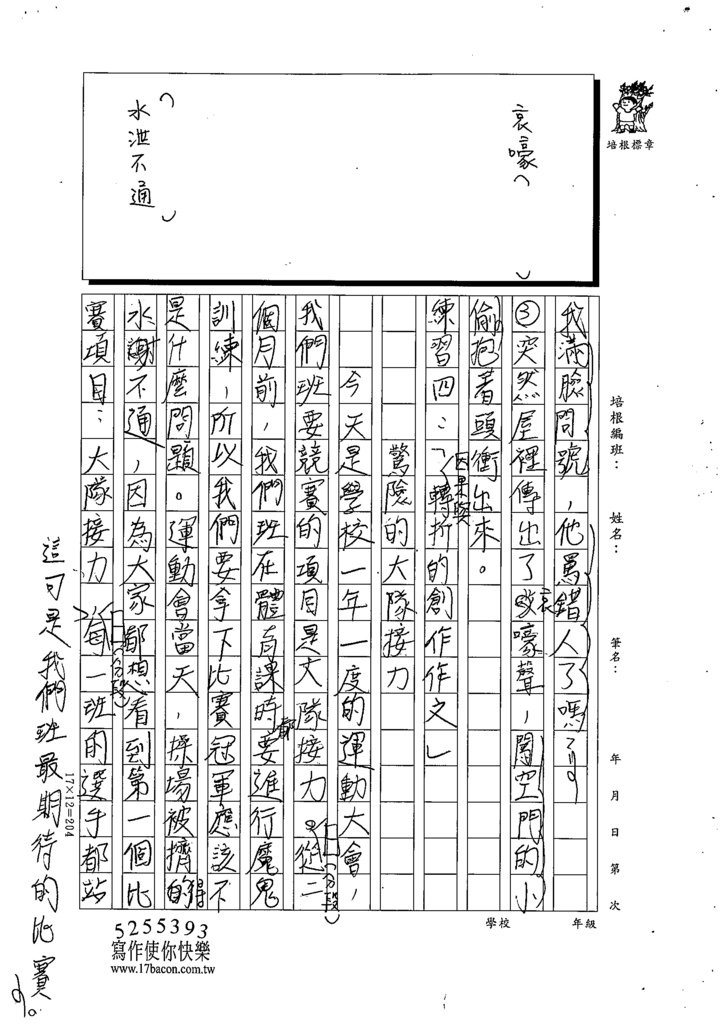 培根標章
哀嚎（ ）
（水泄不通）
培根編班： 姓名： 筆名： 年 月 日 第 次
學校 年級
我滿臉問號，他罵錯人了嗎？
③突然屋裡傳出了哀嚎聲，闖空門的小
偷抱著頭衝出來。
練習四：「因果與轉折的創作作文」
驚險的大隊接力
今天是學校一年一度的運動大會，
我們班要競賽的項目是大隊接力。從二
（分段）
個月前，我們班在體育課時都要進行魔鬼
訓練，所以我們要拿下比賽冠軍應該不
是什麼問題。運動會當天，操場被擠的得
水謝不通，因為大家都想看到第一個比
賽項目：大隊接力 每一班的選手都站
（分段）
這可是我們班最期待的比賽。
17×12=204
5255393
寫作使你快樂
www.17bacon.com.tw